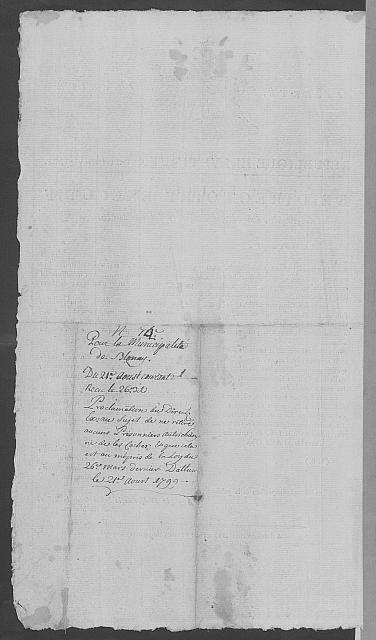 N. 74.
Pour la Municipalité
de Blonay.
Du 21e Aoust courant
Recu le 26e dt
Proclamation du Direct
au Sujet de ne
aucuns Prisonniers
ni de les Cacher &
est au mépris de la Loy du
26e Mars dernier
le 21e Aoust 1799